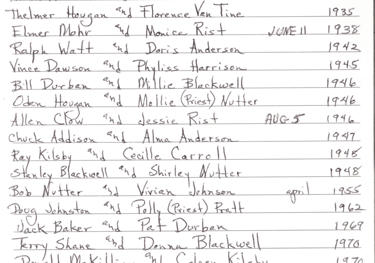 Thelmer Hougan and Florence Van Tine 1935
Elmer Mohr and Monica Rist JUNE 11 1938
Ralph Watt and Doris Anderson 1942
Vince Dawson and Phyliss Harrison 1945
Bill Durban and Millie Blackwell 1946
Oden Hougan and Mollie (Priest) Nutter 1946
Allen Clow and Jessie Rist AUG-5 1946
Chuck Addison and Alma Anderson 1947
Ray Kilsby and Cecille Carroll 1948
Stanley Blackwell and Shirley Nutter 1948
Bob Nutter and Vivian Johnson april 1955
Doug Johnston and Polly (Priest) Pratt 1962
Jack Baker and Pat Durban 1969
Terry Shane and Donna Blackwell 1970
and Kilsby 1970